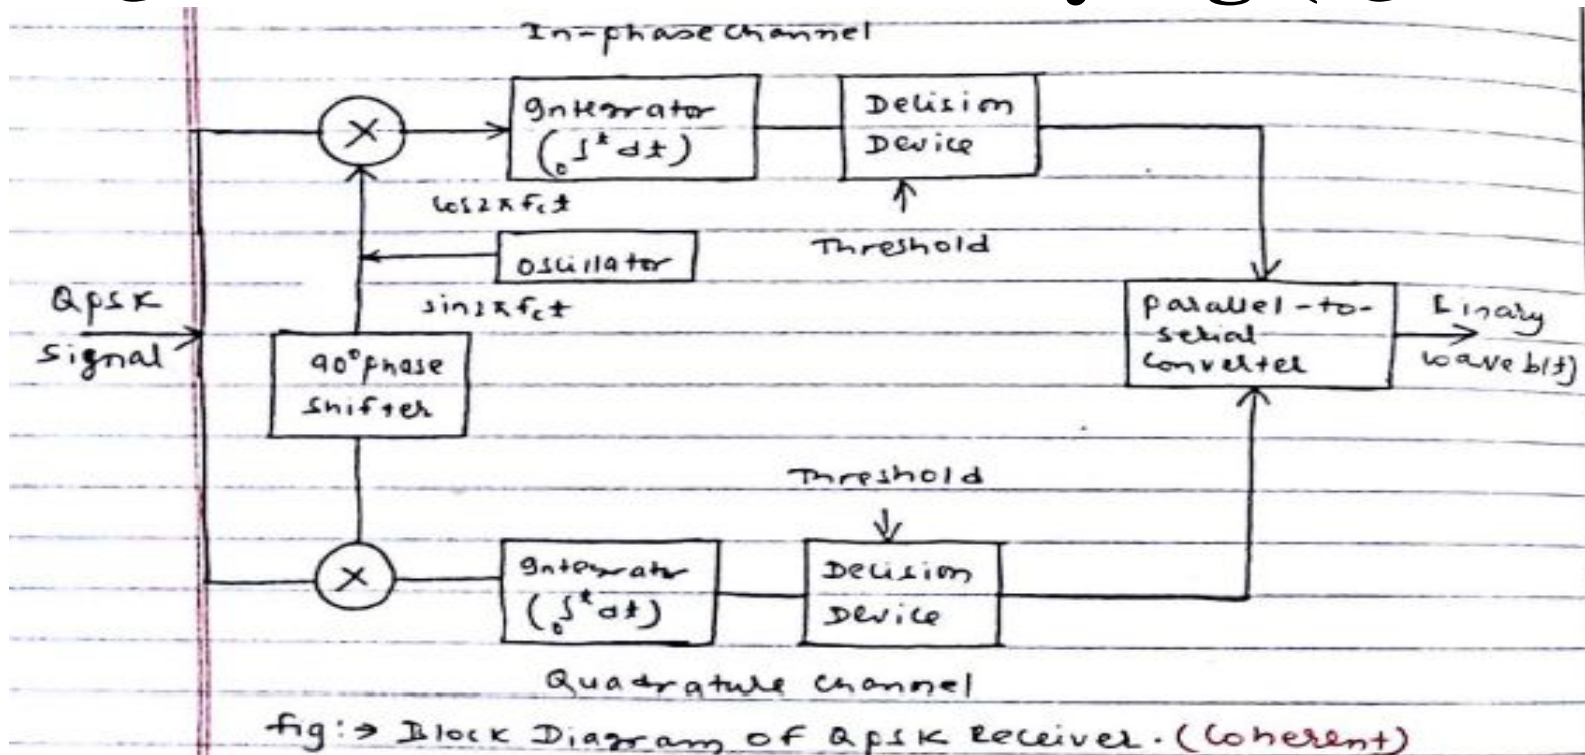 In-phase channel
Integrator
(₀∫ᵗ dt)
Decision
Device
cos2πfct
Threshold
Oscillator
sin2πfct
QPSK
signal
90° phase
shifter
parallel-to-
serial
converter
Binary
wave b(t)
Threshold
Integrator
(₀∫ᵗ dt)
Decision
Device
Quadrature channel
fig:→ Block Diagram of QPSK Receiver. (Coherent)